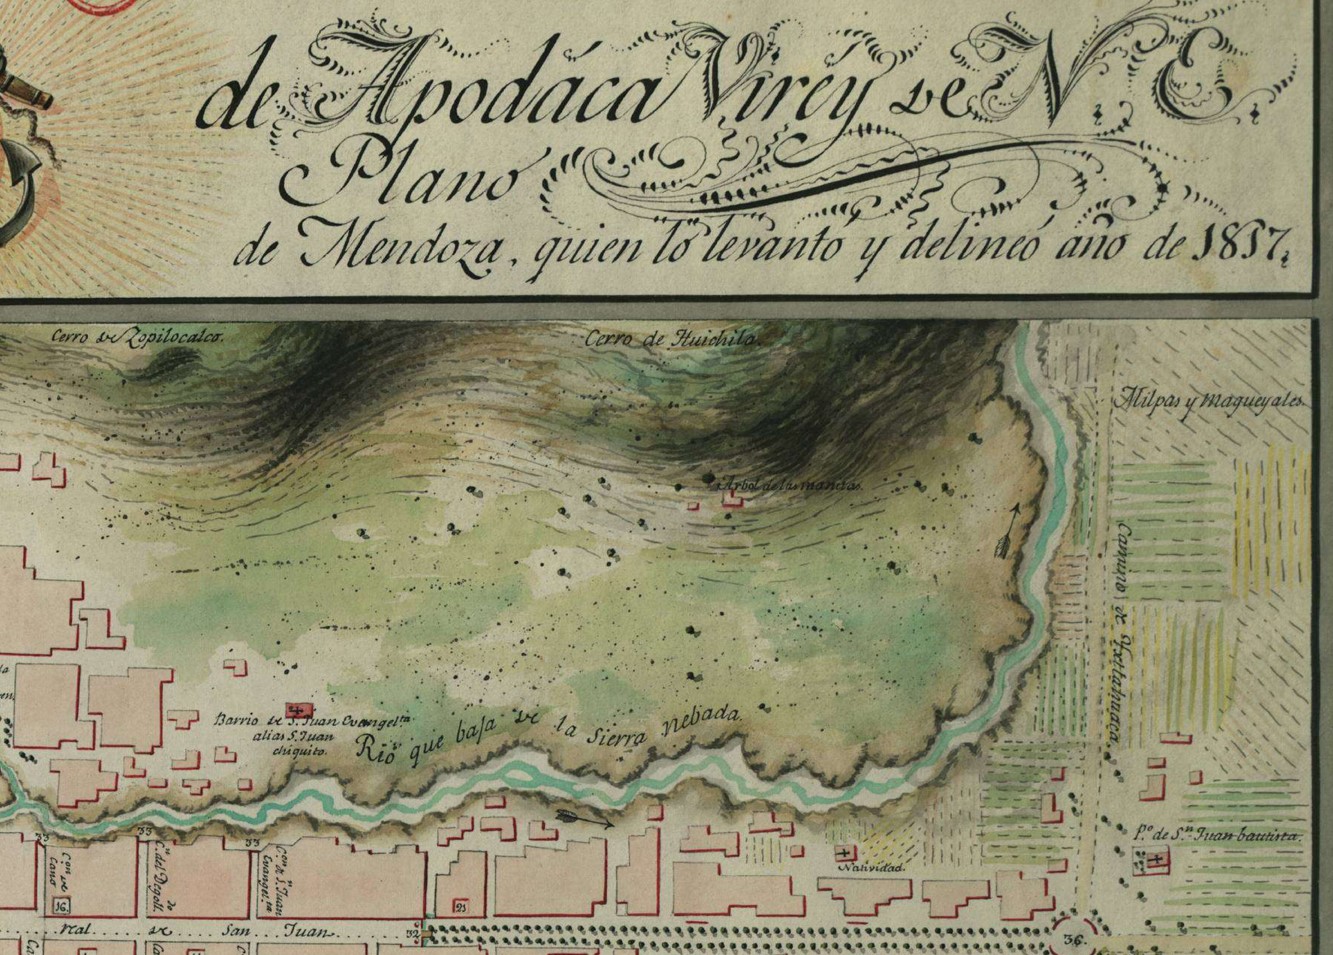 de Apodáca Viréy de N. E.
Plano
de Mendoza, quien lo levantó y delineó año de 1817,
Cerro de Zopilocalco.
Cerro de Huichila.
Milpas y magueyales.
Arbol de las manitas.
Camino de Yxtlahuaca.
Barrio de S. Juan Evangel.ta
alias S. Juan
chiquito.
Rio que baja de la Sierra nebada.
P.o de S.n Juan bautista.
Natividad.
33
33
33
C.on de
Cano
C.n del Degoll.
do
C.on de S.n Juan
Evangel.ta
16.
21
32
real de San Juan
36.